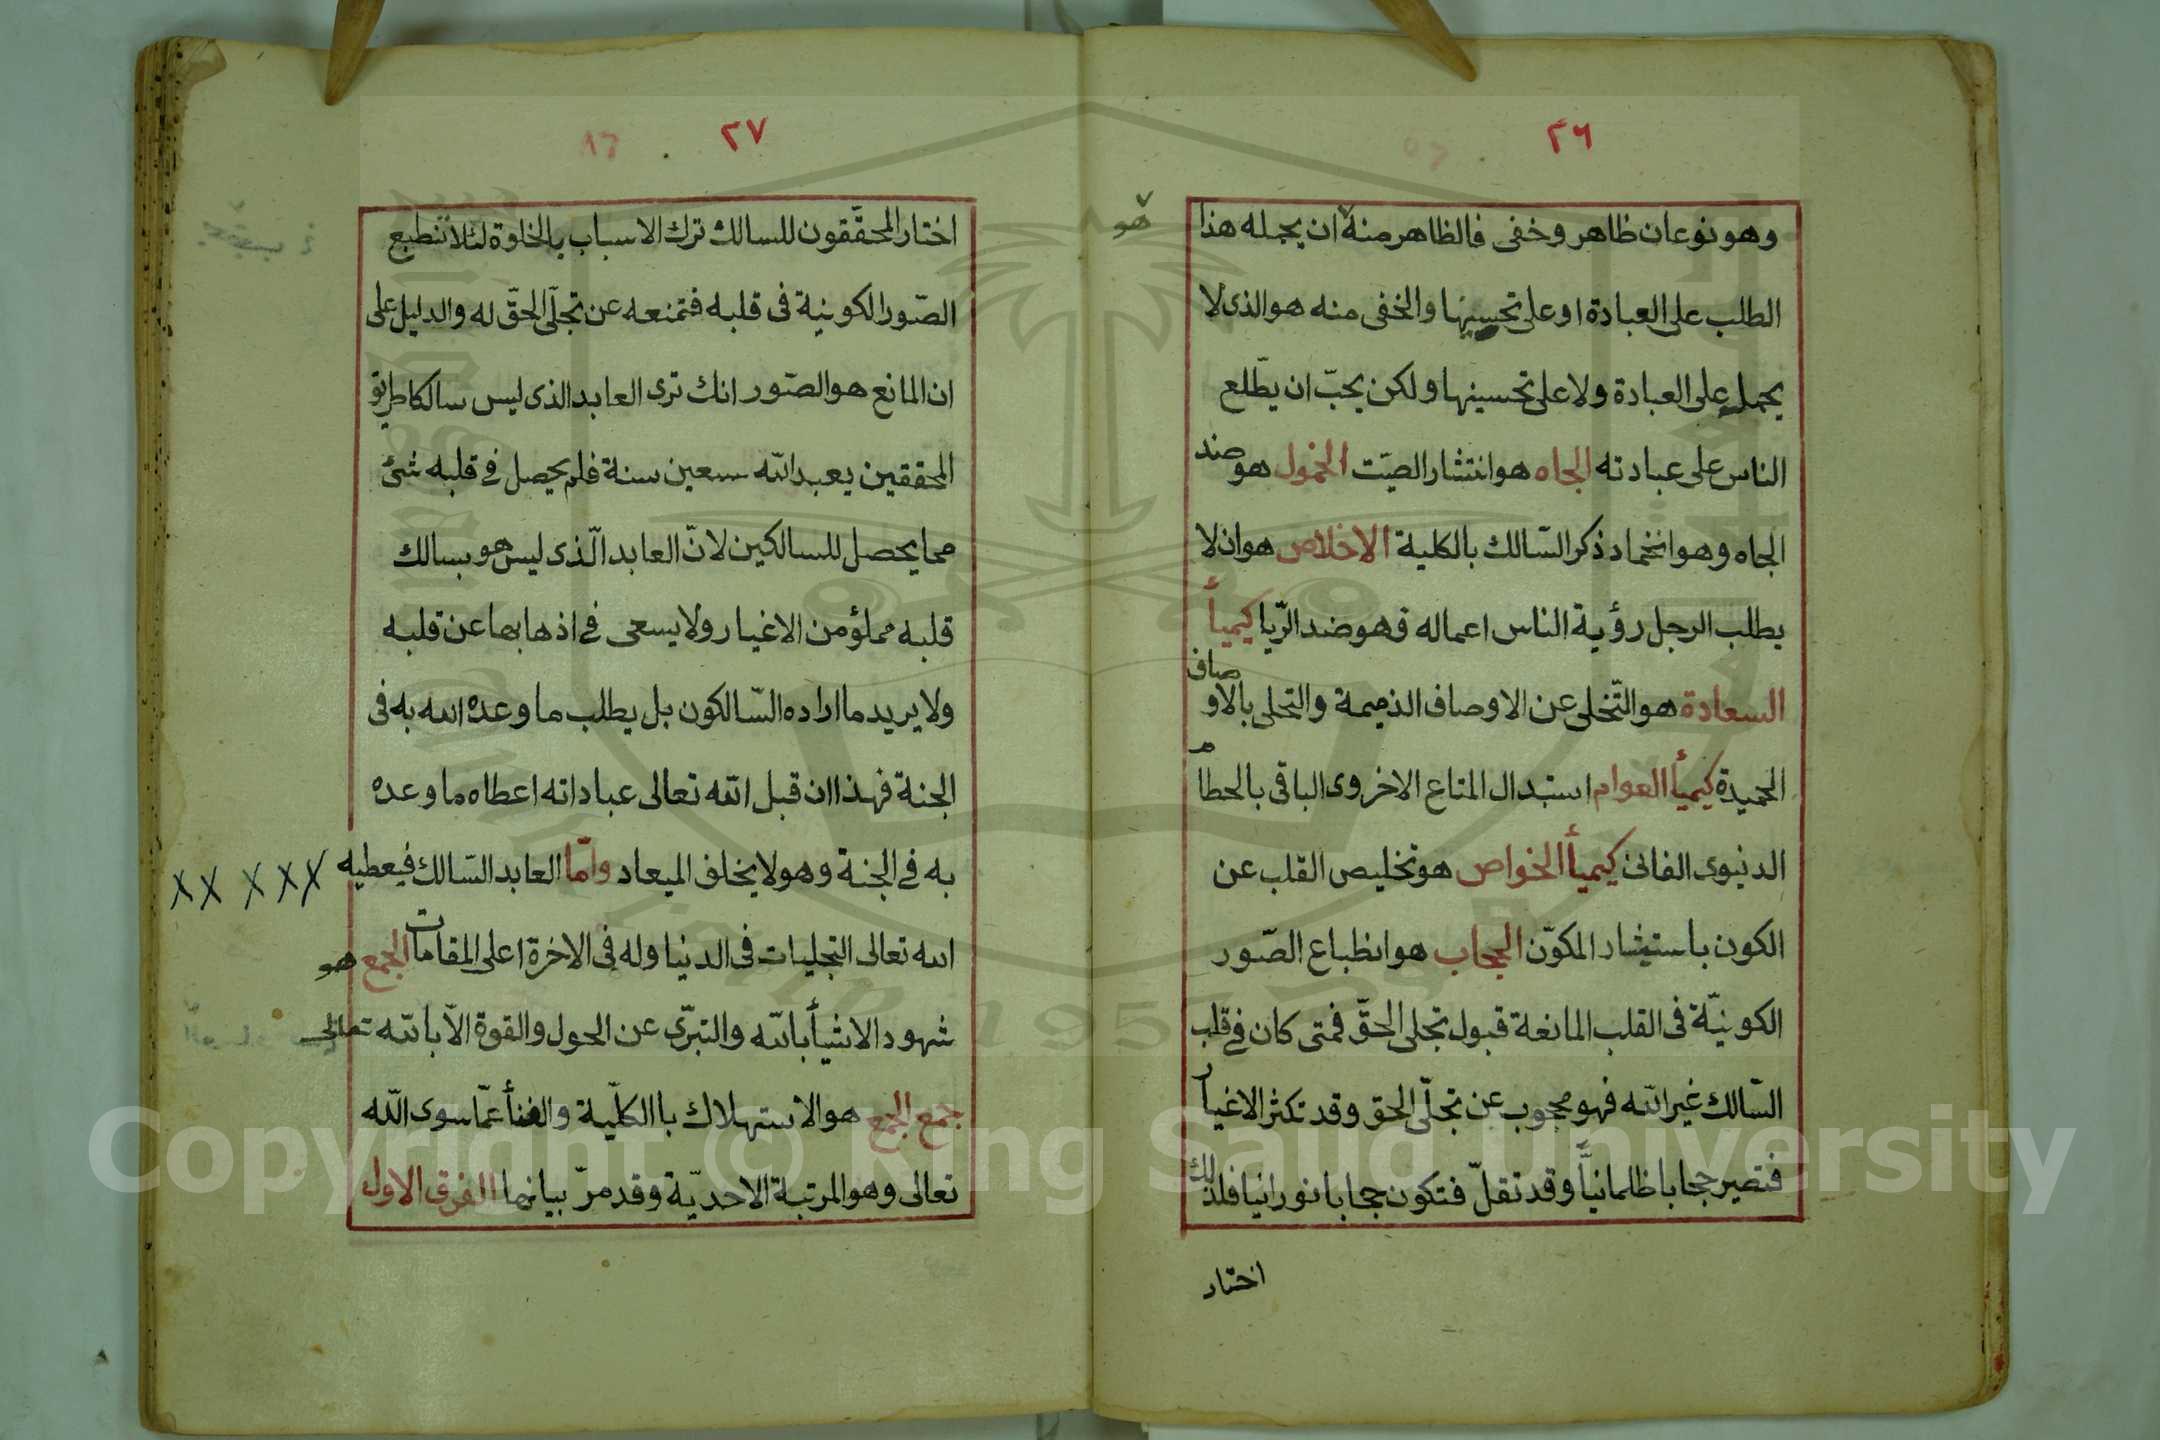 ٢٦
وهو نوعان ظاهر وخفى فالظاهر منه ان يحمله هذا
هو
الطلب على العبادة او على تحسينها والخفى منه هو الذى لا
يحمل على العبادة ولا على تحسينها ولكن يحبّ ان يطّلع
الناس على عبادته الجاه هو انتشار الصيّت الخمول هو ضد
الجاه وهو انخماد ذكر السّالك بالكلية الاخلاص هو ان لا
يطلب الرجل رؤية الناس اعماله وهو ضد الرّيا كيميأ
السعادة هو التّخلى عن الاوصاف الذميمة والتحلى بالاوصاف
الحميدة كيميأ العوام استبدال المتاع الاخروى الباقى بالحطام
الدنيوى الفانى كيميأ الخواص هو تخليص القلب عن
الكون باستيثار المكوّن الحجاب هو انطباع الصّور
الكونيّة فى القلب المانعة قبول تجلى الحقّ فمتى كان فى قلب
السّالك غير الله فهو محجوب عن تجلّى الحق وقد تكثر الاغيار
فتصير حجابا ظلمانياً وقد تقلّ فتكون حجابا نورانيا فلذلك
اختار
٢٧
اختار المحقّقون للسالك ترك الاسباب بالخلوة لئلا تنطبع
الصّور الكونية فى قلبه فتمنعه عن تجلّى الحقّ له والدليل على
ان المانع هو الصّور انك ترى العابد الذى ليس سالكا طريق
المحققين يعبد الله سبعين سنة فلم يحصل فى قلبه شئ
مما يحصل للسالكين لانّ العابد الّذى ليس هو بسالك
قلبه مملؤ من الاغيار ولا يسعى فى اذهابها عن قلبه
ولا يريد ما اراده السّالكون بل يطلب ما وعده الله به فى
الجنة فهذا ان قبل الله تعالى عباداته اعطاه ما وعده
به فى الجنة وهو لا يخلف الميعاد وامّا العابد السّالك فيعطيه
الله تعالى التجليات فى الدنيا وله فى الاخرة اعلى المقامات الجمع هو
شهود الاشيأ بالله والتبرّى عن الحول والقوة الّا بالله تعالى
جمع الجمع هو الاستهلاك با الكلّية والفنأ عمّا سوى الله
تعالى وهو المرتبة الاحديّة وقد مرّ بيانها الفرق الاول
Copyright © King Saud University